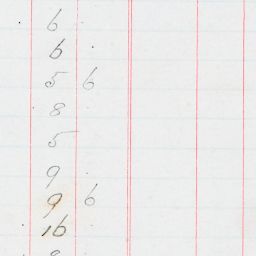 6
6
5 6
8
5
9
9 6
16